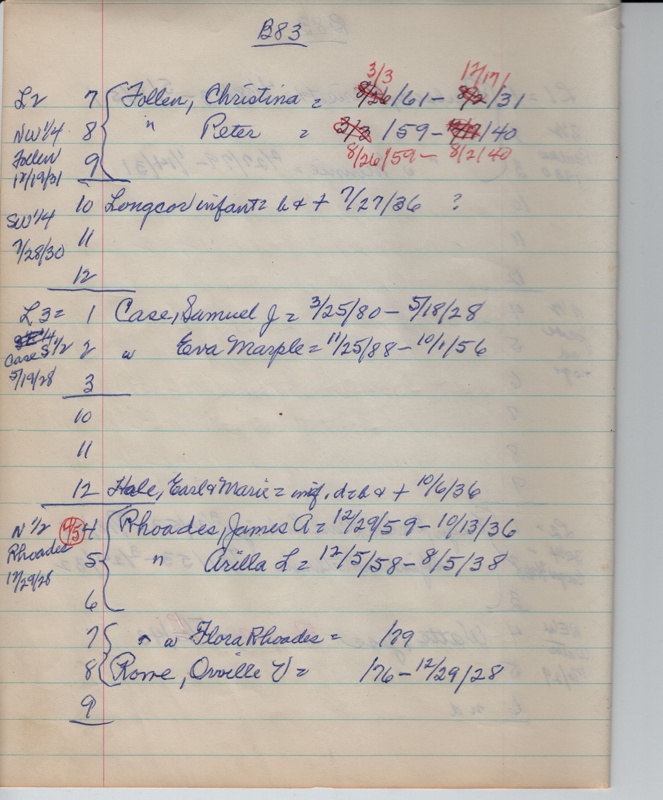 B83
3/3 12/17/
L2 7 Follen, Christina = 8/26/61 - 8/2/31
NW 1/4 8 " Peter = 3/3/59 - 12/17/40
Follen 9 8/26/59 - 8/2/40
12/19/31
SW 1/4 10 Longcor infant = b & + 7/27/36 ?
7/28/30 11
12
L3 = 1 Case, Samuel J = 3/25/80 - 5/18/28
Case S 1/2 2 w Eva Marple = 11/25/88 - 10/1/56
5/19/28 3
10
11
12 Hale, Earl & Marie = inf. d = b & + 10/6/36
N 1/2 4 Rhoades, James A = 12/29/59 - 10/13/36
Rhoades 5 " Arilla L = 12/5/58 - 8/5/38
12/29/28
6
7 " w Flora Rhoades = /79
8 Rome, Orville V = /76 - 12/29/28
9